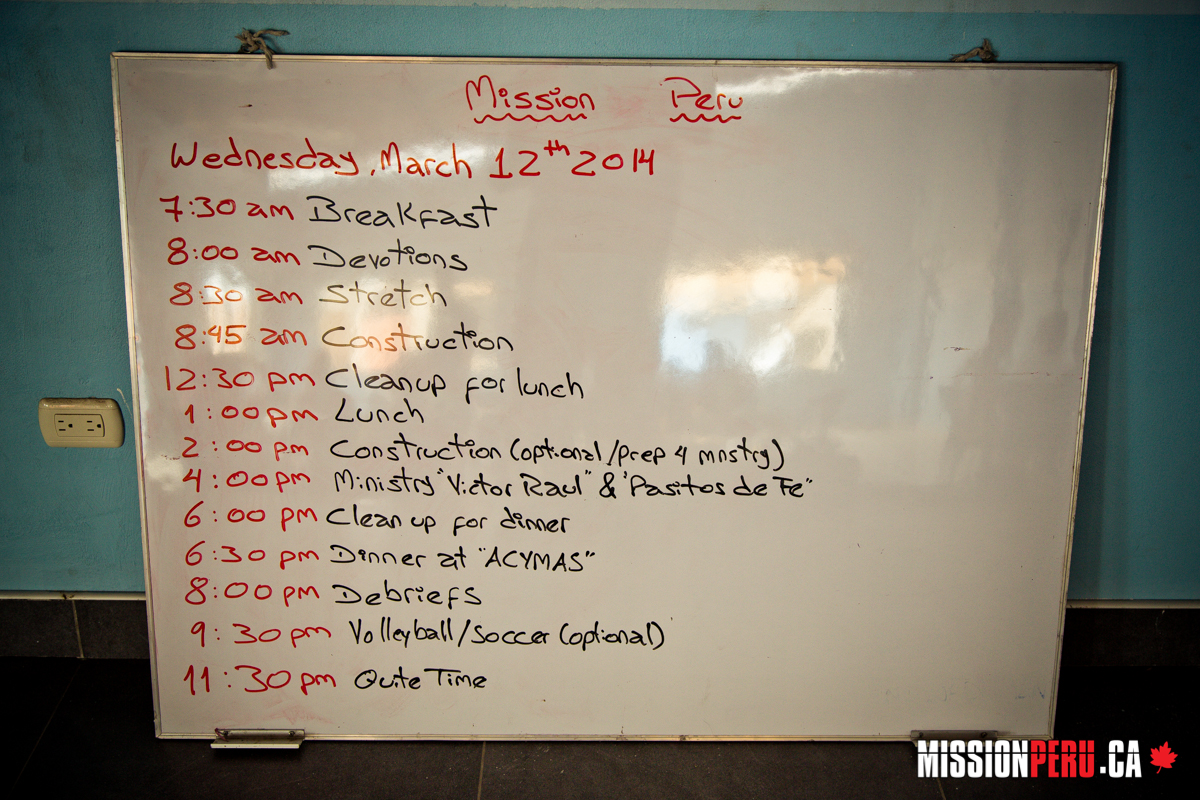 Mission Peru
Wednesday, March 12th 2014
7:30 am Breakfast
8:00 am Devotions
8:30 am Stretch
8:45 am Construction
12:30 pm Cleanup for lunch
1:00pm Lunch
2:00 pm Construction (optional/prep 4 mnstry)
4:00pm Ministry "Victor Raul" & "Pasitos de Fe"
6:00 pm Clean up for dinner
6:30 pm Dinner at "ACYMAS"
8:00 pm Debriefs
9:30pm Volleyball/Soccer (optional)
11:30pm Quite Time
MISSIONPERU.CA